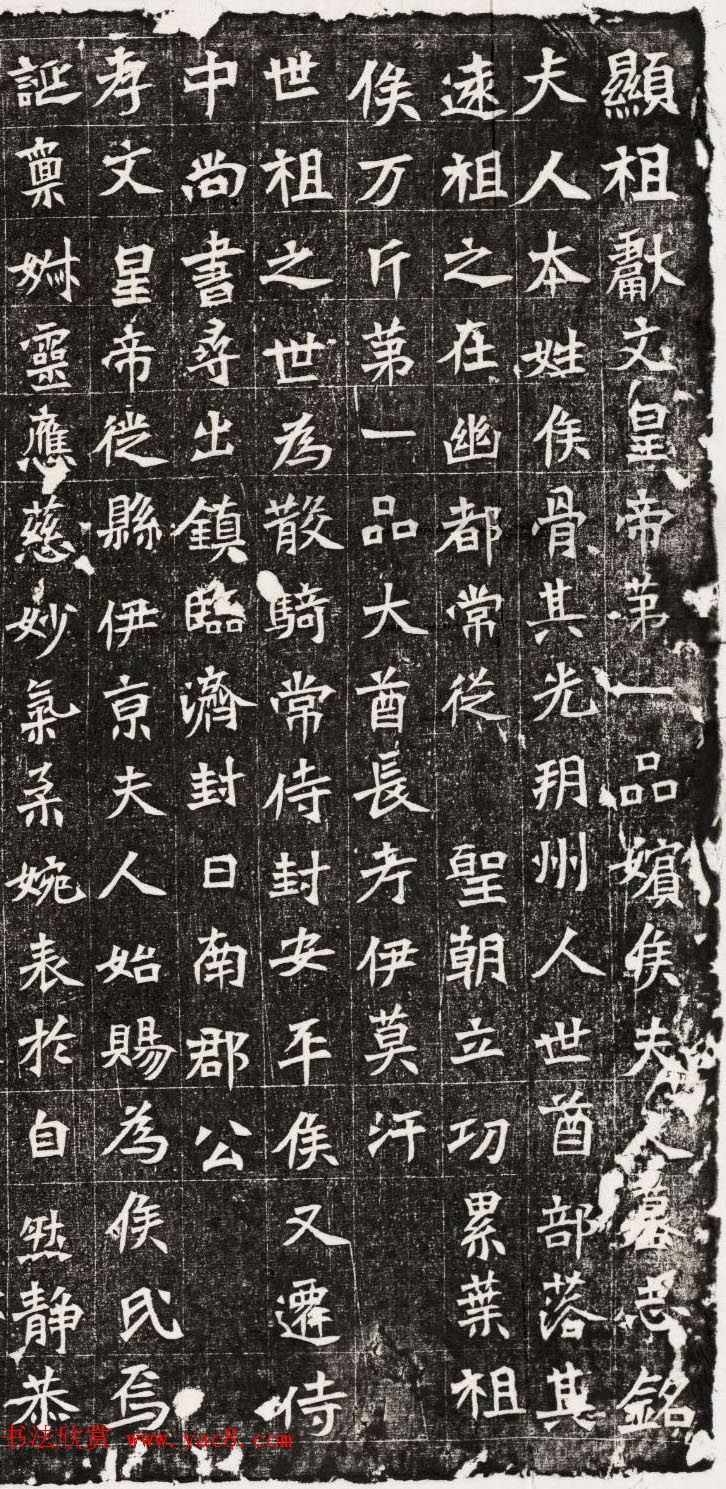 顯祖獻文皇帝第一品嬪侯夫人墓志銘
夫人本姓侯骨其先朔州人世酋部落其
遠祖之在幽都常從 聖朝立功累葉祖
俟万斤第一品大酋長考伊莫汗
世祖之世為散騎常侍封安平侯又遷侍
中尚書尋出鎮臨濟封日南郡公
孝文皇帝從縣伊京夫人始賜為侯氏焉
誕稟姌靈應慈妙氣柔婉表於自然靜恭
书法欣赏 www.yac8.com